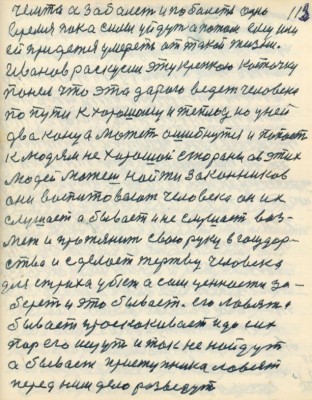 113
чем та а забалеть и поболеть одно
время пока силы уйдут а потом ему или
ей придется умереть от такой жизни.
Иванов раскусил эту крепкою косточку
понял что это дорога ведет человека
по пути к хорошому и теплому но у ней
два конца может ошибнутся и попасть
к людям не хорошой стороны а в этих
людей можеш найти законников
они воспитовают человека он их
слушает а бывает и не слушает воз-
мет и протянит свою руку в государ-
ство и сделает жертву человека
для страха убьет а сам ценности за-
берет и это бывает. его ловят
бывает проскакивает и до сих
пор его ищут и так не найдут
а бывает приступника ловят
перед ним дело розведут